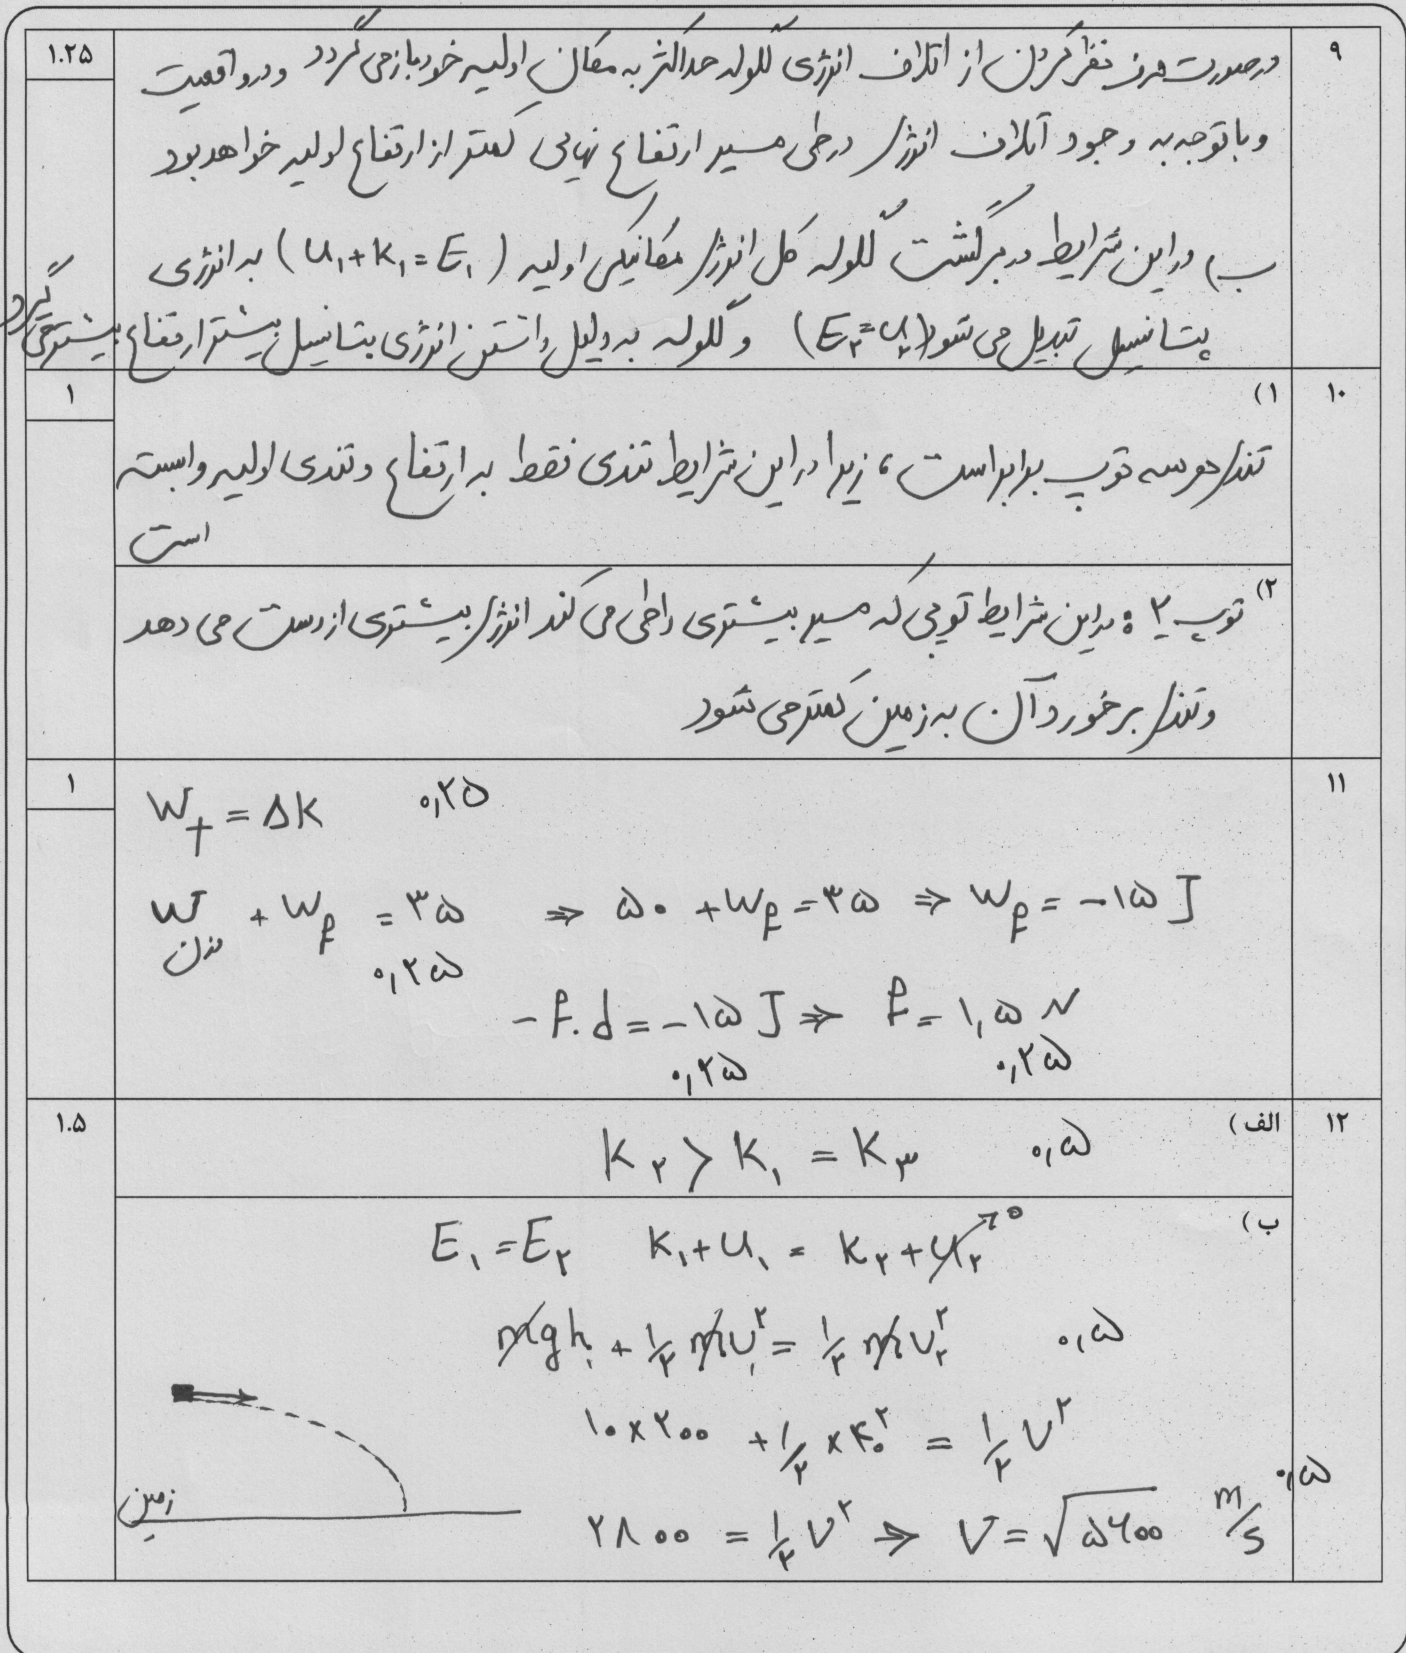 ۹
۱.۲۵
در صورت صرف نظر کردن از اتلاف انرژی گلوله حداکثر به مکان اولیه خود باز می گردد و در واقعیت
و با توجه به وجود اتلاف انرژی در طی مسیر ارتفاع نهایی کمتر از ارتفاع اولیه خواهد بود
ب) در این شرایط در برگشت گلوله کل انرژی مکانیکی اولیه (U₁+K₁=E₁) به انرژی
پتانسیل تبدیل می شود (E₂=U₂) و گلوله به دلیل داشتن انرژی پتانسیل بیشتر ارتفاع بیشتر می گیرد
۱۰
۱
۱)
تندی هر سه توپ برابر است، زیرا در این شرایط تندی فقط به ارتفاع و تندی اولیه وابسته
است
۲) توپ ۲: در این شرایط توپی که مسیر بیشتری را طی می کند انرژی بیشتری از دست می دهد
و تندی برخورد آن به زمین کمتر می شود
۱۱
۱
W_t = ΔK ۰,۲۵
W وزن + W_f = ۳۵ ⇒ ۵۰ + W_f = ۳۵ ⇒ W_f = -۱۵ J
۰,۲۵
-f.d = -۱۵ J ⇒ f = ۱,۵ N
۰,۲۵ ۰,۲۵
۱۲
۱.۵
الف)
K₂ > K₁ = K₃ ۰,۵
ب)
E₁ = E₂ K₁+U₁ = K₂+U₂ ↗ ۰
mgh₁ + ½ mv₁² = ½ mv₂² ۰,۵
۱۰×۲۰۰ + ½ × ۴۰² = ½ V²
۲۸۰۰ = ½ V² ⇒ V = √۵۶۰۰ m/s ۰,۵
زمین